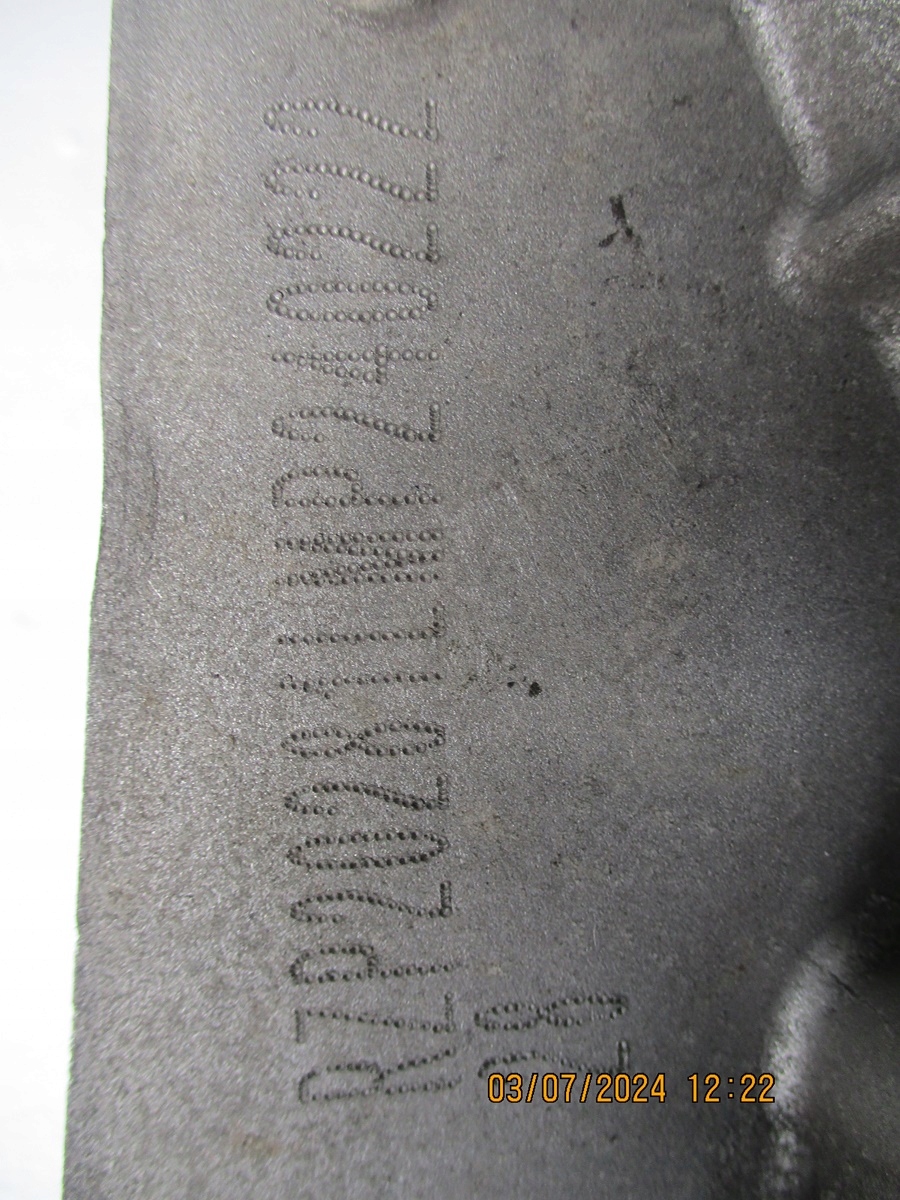 RZP20281LMP240222
28
03/07/2024 12:22